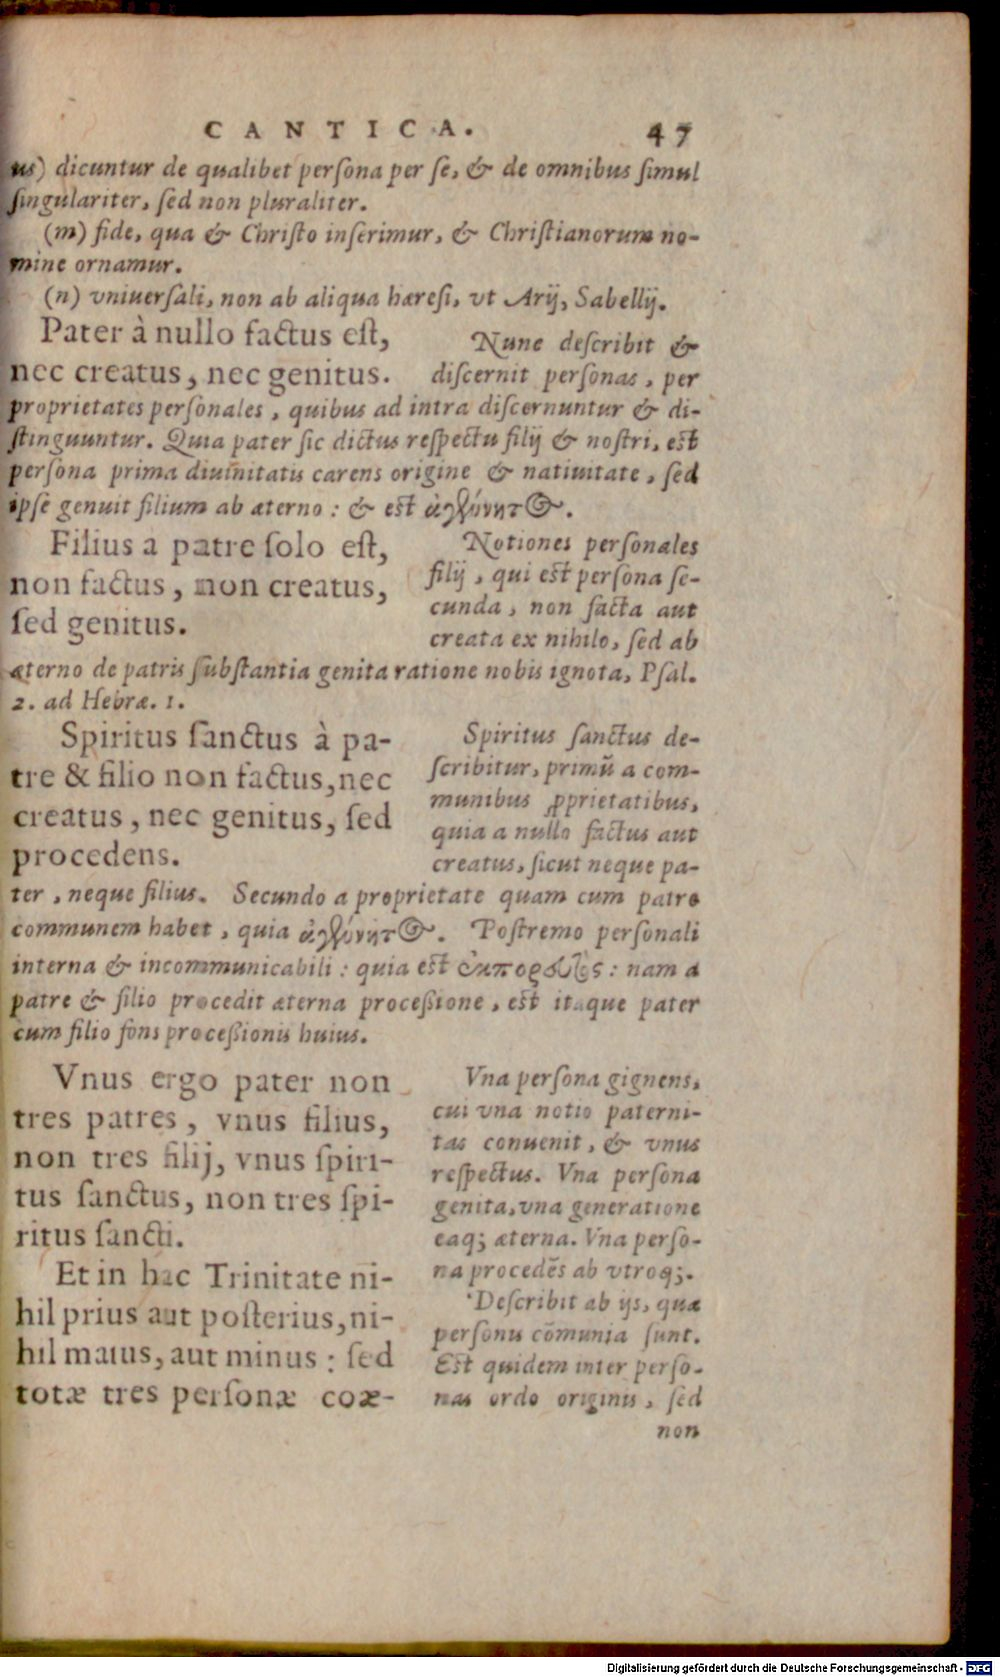 CANTICA. 47
us) dicuntur de qualibet persona per se, & de omnibus simul
singulariter, sed non pluraliter.
(m) fide, qua & Christo inserimur, & Christianorum no-
mine ornamur.
(n) vniuersali, non ab aliqua hæresi, vt Arij, Sabellij.
Pater à nullo factus est,
nec creatus, nec genitus.
Nunc describit &
discernit personas, per
proprietates personales, quibus ad intra discernuntur & di-
stinguuntur. Quia pater sic dictus respectu filij & nostri, est
persona prima diuinitatis carens origine & natiuitate, sed
ipse genuit filium ab æterno: & est
Filius a patre solo est,
non factus, non creatus,
sed genitus.
Notiones personales
filij, qui est persona se-
cunda, non facta aut
creata ex nihilo, sed ab
æterno de patris substantia genita ratione nobis ignota, Psal.
2. ad Hebræ. 1.
Spiritus sanctus à pa-
tre & filio non factus, nec
creatus, nec genitus, sed
procedens.
Spiritus sanctus de-
scribitur, primũ a com-
munibus ꝓprietatibus,
quia a nullo factus aut
creatus, sicut neque pa-
ter, neque filius. Secundo a proprietate quam cum patre
communem habet, quia Postremo personali
interna & incommunicabili: quia est : nam a
patre & filio procedit æterna processione, est itaque pater
cum filio fons processionis huius.
Vnus ergo pater non
tres patres, vnus filius,
non tres filij, vnus spiri-
tus sanctus, non tres spi-
ritus sancti.
Et in hac Trinitate ni-
hil prius aut posterius, ni-
hil maius, aut minus: sed
totæ tres personæ coæ-
Vna persona gignens,
cui vna notio paterni-
tas conuenit, & vnus
respectus. Vna persona
genita, vna generatione
eaq; æterna. Vna perso-
na procedẽs ab vtroq;.
Describit ab ijs, quæ
personis cõmunia sunt.
Est quidem inter perso-
nas ordo originis, sed
non
Digitalisierung gefördert durch die Deutsche Forschungsgemeinschaft - DFG